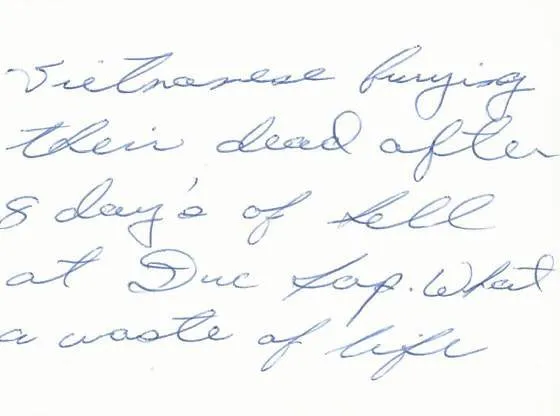 Vietnamese burying
their dead after
8 day's of Hell
at Duc Lap. What
a waste of life